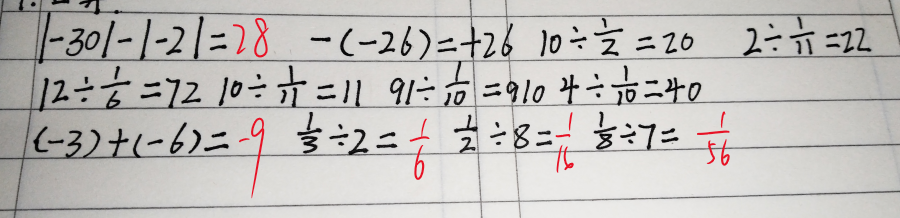 |-30|-|-2|=28 -(-26)=+26 10÷1/2=20 2÷1/11=22
12÷1/6=72 10÷1/11=11 91÷1/10=910 4÷1/10=40
(-3)+(-6)=-9 1/3÷2=1/6 1/2÷8=1/16 1/8÷7=1/56